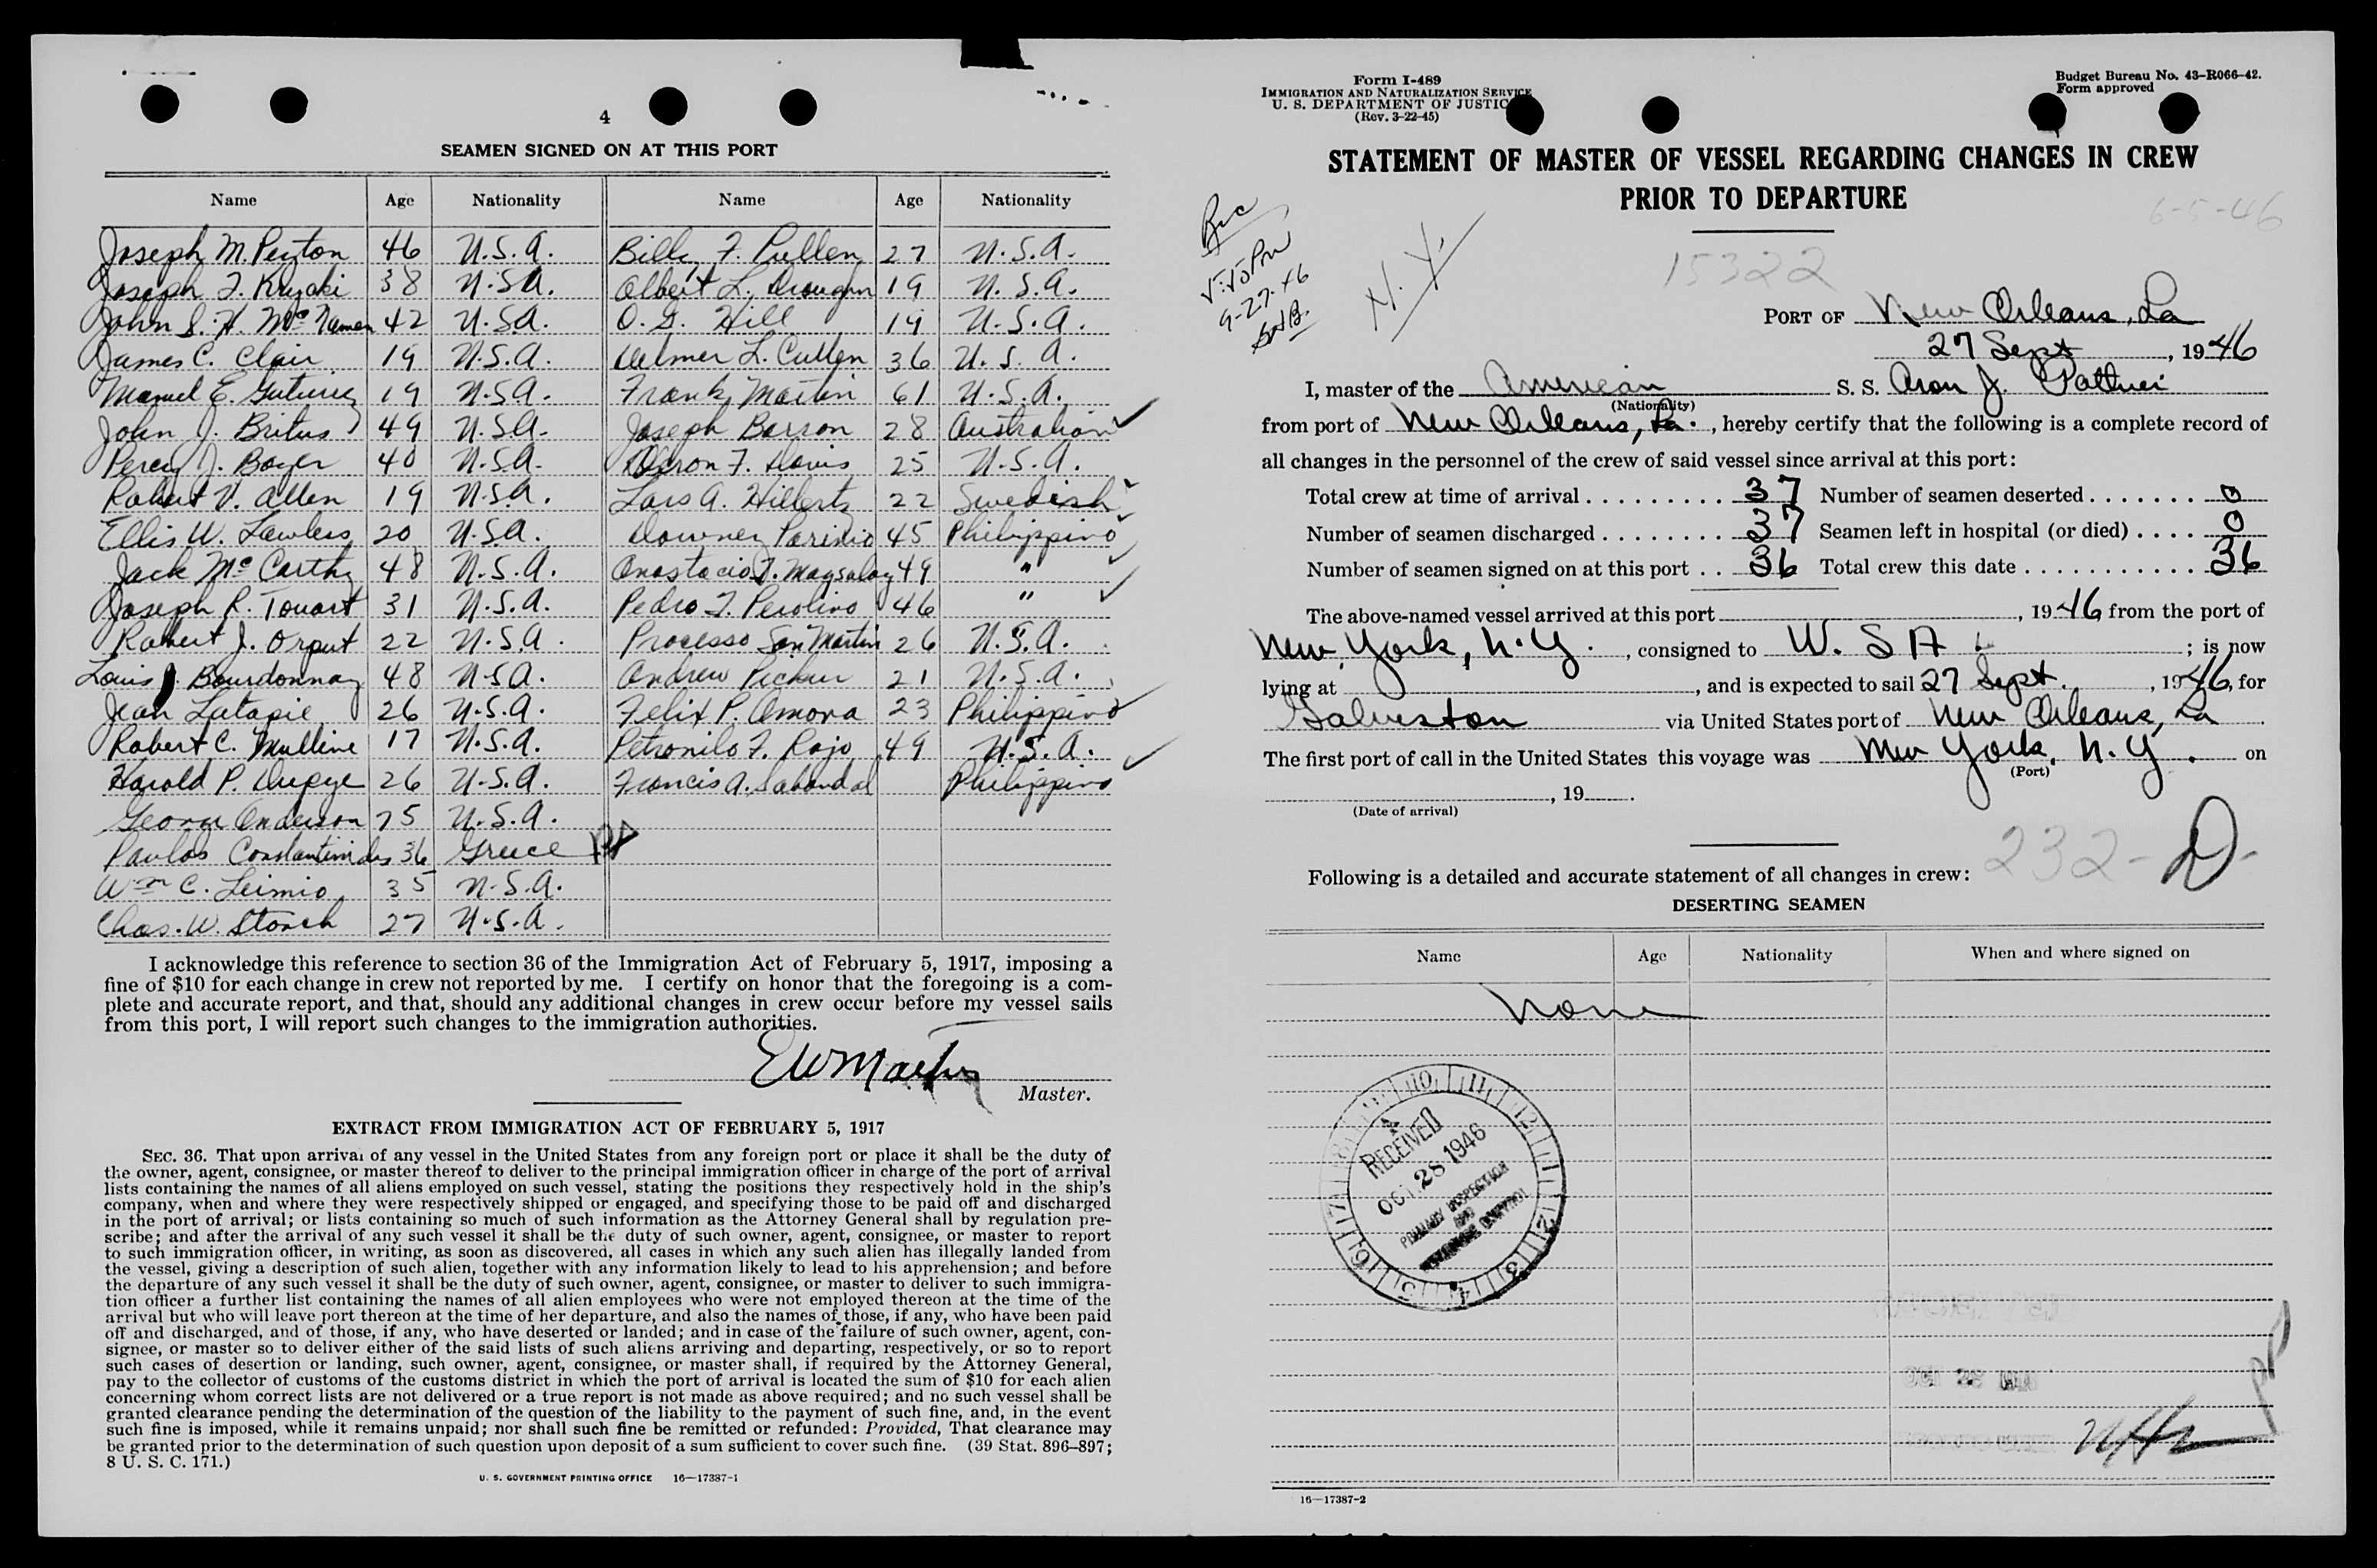 4
SEAMEN SIGNED ON AT THIS PORT
Name Age Nationality Name Age Nationality
Joseph M. Peyton 46 U.S.A. Billy F. Pullen 27 U.S.A.
Joseph F. 38 U.S.A. Albert L. 19 U.S.A.
John S. H. 42 U.S.A. O. G. Hill 19 U.S.A.
James C. Clair 19 U.S.A. Delmer L. Cullen 36 U.S.A.
Manuel E. 19 U.S.A. Frank Martin 61 U.S.A.
John J. Britus 49 U.S.A. Joseph Barron 28 Australian
Percy J. Boyer 40 U.S.A. F. Davis 25 U.S.A.
Robert V. Allen 19 U.S.A. Lars A. Hillertz 22 Swedish
Ellis W. Lawless 20 U.S.A. Parinio 45 Philippino
Jack McCarthy 48 U.S.A. Anastacio D. Magsalay 49 "
Joseph R. Touart 31 U.S.A. Pedro T. Perolino 46 "
Robert J. Orput 22 U.S.A. Processo San Martin 26 U.S.A.
Louis J Bourdonnay 48 U.S.A. Andrew 21 U.S.A.
Jean Latapie 26 U.S.A. Felix P. Amora 23 Philippino
Robert C. Mulline 17 U.S.A. Petronilo F. Rojo 49 U.S.A.
Harold P. Dupye 26 U.S.A. Francis A. Sabandal Philippino
George Anderson 25 U.S.A.
Pavlos Constantinides 36 Greece
Wm C. Leimio 35 U.S.A.
Chas. W. Storch 27 U.S.A.
I acknowledge this reference to section 36 of the Immigration Act of February 5, 1917, imposing a
fine of $10 for each change in crew not reported by me. I certify on honor that the foregoing is a com-
plete and accurate report, and that, should any additional changes in crew occur before my vessel sails
from this port, I will report such changes to the immigration authorities.
E W Martin
Master.
EXTRACT FROM IMMIGRATION ACT OF FEBRUARY 5, 1917
SEC. 36. That upon arrival of any vessel in the United States from any foreign port or place it shall be the duty of
the owner, agent, consignee, or master thereof to deliver to the principal immigration officer in charge of the port of arrival
lists containing the names of all aliens employed on such vessel, stating the positions they respectively hold in the ship's
company, when and where they were respectively shipped or engaged, and specifying those to be paid off and discharged
in the port of arrival; or lists containing so much of such information as the Attorney General shall by regulation pre-
scribe; and after the arrival of any such vessel it shall be the duty of such owner, agent, consignee, or master to report
to such immigration officer, in writing, as soon as discovered, all cases in which any such alien has illegally landed from
the vessel, giving a description of such alien, together with any information likely to lead to his apprehension; and before
the departure of any such vessel it shall be the duty of such owner, agent, consignee, or master to deliver to such immigra-
tion officer a further list containing the names of all alien employees who were not employed thereon at the time of the
arrival but who will leave port thereon at the time of her departure, and also the names of those, if any, who have been paid
off and discharged, and of those, if any, who have deserted or landed; and in case of the failure of such owner, agent, con-
signee, or master so to deliver either of the said lists of such aliens arriving and departing, respectively, or so to report
such cases of desertion or landing, such owner, agent, consignee, or master shall, if required by the Attorney General,
pay to the collector of customs of the customs district in which the port of arrival is located the sum of $10 for each alien
concerning whom correct lists are not delivered or a true report is not made as above required; and no such vessel shall be
granted clearance pending the determination of the question of the liability to the payment of such fine, and, in the event
such fine is imposed, while it remains unpaid; nor shall such fine be remitted or refunded: Provided, That clearance may
be granted prior to the determination of such question upon deposit of a sum sufficient to cover such fine. (39 Stat. 896–897;
8 U. S. C. 171.)
U. S. GOVERNMENT PRINTING OFFICE 16—17387-1
Form I-489
IMMIGRATION AND NATURALIZATION SERVICE
U. S. DEPARTMENT OF JUSTIC
(Rev. 3-22-45)
Budget Bureau No. 43-R066-42.
Form approved
STATEMENT OF MASTER OF VESSEL REGARDING CHANGES IN CREW
PRIOR TO DEPARTURE
6-5-46
Rec
5:15 PM
9-27-46
N.Y.
15322
PORT OF New Orleans, La
27 Sept, 1946
I, master of the American S. S. Aron J.
(Nationality)
from port of New Orleans, La., hereby certify that the following is a complete record of
all changes in the personnel of the crew of said vessel since arrival at this port:
Total crew at time of arrival 37 Number of seamen deserted 0
Number of seamen discharged 37 Seamen left in hospital (or died) 0
Number of seamen signed on at this port 36 Total crew this date 36
The above-named vessel arrived at this port , 1946 from the port of
New York, N.Y., consigned to W. S A ; is now
lying at , and is expected to sail 27 Sept., 1946, for
Galveston via United States port of New Orleans, La
The first port of call in the United States this voyage was New York, N.Y. on
(Port)
, 19 .
(Date of arrival)
232-D-
Following is a detailed and accurate statement of all changes in crew:
DESERTING SEAMEN
Name Age Nationality When and where signed on
None
RECEIVED
OCT 28 1946
PRIMARY INSPECTION
AND
16—17387-2